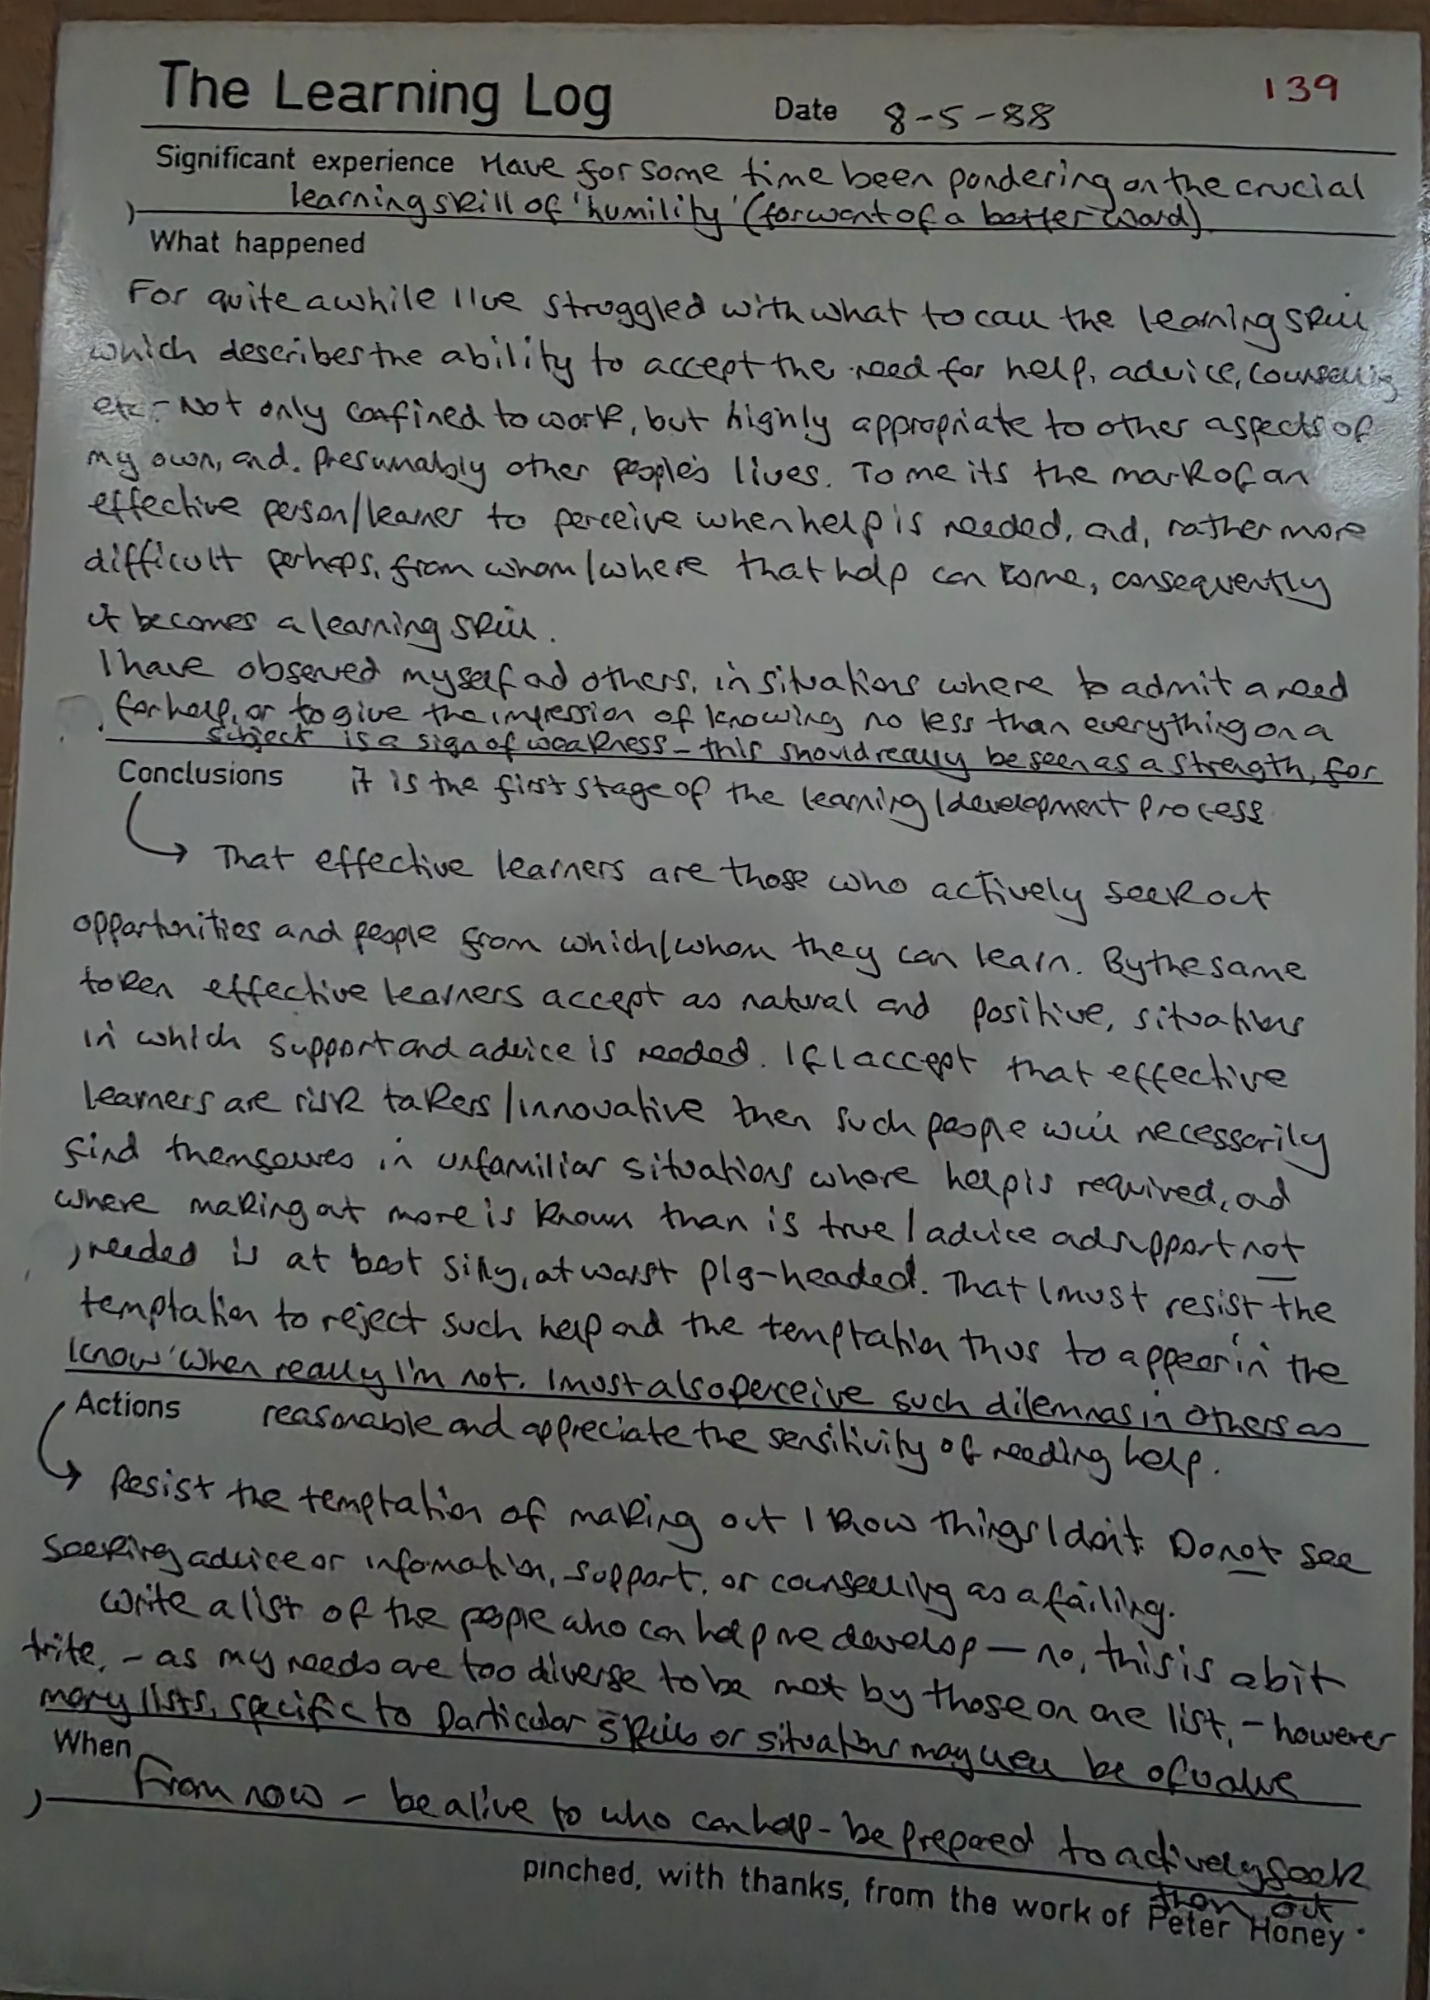 139
The Learning Log Date 8-5-88
Significant experience Have for some time been pondering on the crucial
learning skill of 'humility' (for want of a better word).
What happened
For quite awhile I've struggled with what to call the learning skill
which describes the ability to accept the need for help, advice, counselling
etc - Not only confined to work, but highly appropriate to other aspects of
my own, and. presumably other people's lives. To me its the mark of an
effective person/learner to perceive when help is needed, and, rather more
difficult perhaps, from whom/where that help can come, consequently
it becomes a learning skill.
I have observed myself and others, in situations where to admit a need
for help, or to give the impression of knowing no less than everything on a
subject is a sign of weakness - this should really be seen as a strength, for
Conclusions it is the first stage of the learning/development process.
→ That effective learners are those who actively seek out
opportunities and people from which/whom they can learn. By the same
token effective learners accept as natural and positive, situations
in which support and advice is needed. If I accept that effective
learners are risk takers/innovative then such people will necessarily
find themselves in unfamiliar situations where help is required, and
where making out more is known than is true/advice and support not
needed is at best silly, at worst pig-headed. That I must resist the
temptation to reject such help and the temptation thus to appear 'in the
know' when really I'm not. I must also perceive such dilemnas in others as
Actions reasonable and appreciate the sensitivity of needing help.
→ Resist the temptation of making out I know things I don't. Do not see
seeking advice or information, support, or counselling as a failing.
Write a list of the people who can help me develop — no, this is a bit
trite, - as my needs are too diverse to be met by those on one list, - however
many lists, specific to particular skills or situations may well be of value
When
From now - be alive to who can help - be prepared to actively seek
them out
pinched, with thanks, from the work of Peter Honey.